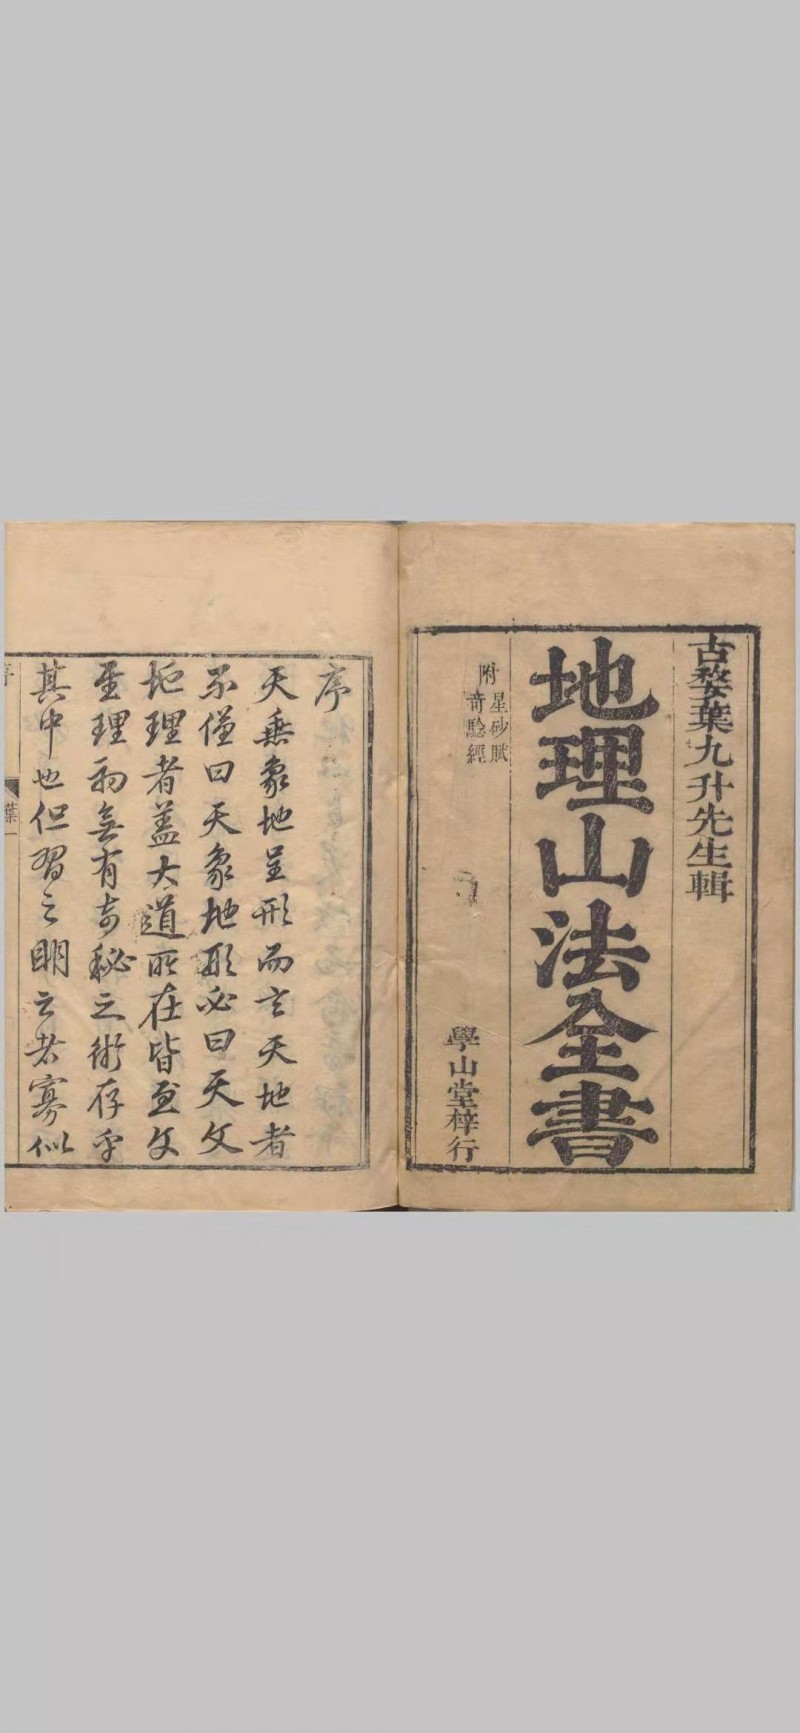 古婺葉九升先生輯
地理山法全書
附
星砂賦
竒騐經
學山堂梓行
序
天垂象地呈形而言天地者
不僅曰天象地形必曰天文
地理者蓋大道所在皆至文
至理初無有奇秘之術存乎
其中也但習之明之者寡似
序
葉一